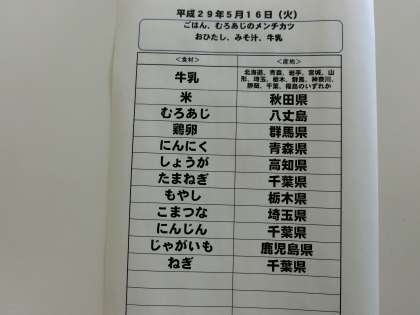 平成29年5月16日（火）
ごはん、むろあじのメンチカツ
おひたし、みそ汁、牛乳
＜食材＞ ＜産地＞
牛乳 北海道、青森、岩手、宮城、山
形、埼玉、栃木、群馬、神奈川、
静岡、千葉、福島のいずれか
米 秋田県
むろあじ 八丈島
鶏卵 群馬県
にんにく 青森県
しょうが 高知県
たまねぎ 千葉県
もやし 栃木県
こまつな 埼玉県
にんじん 千葉県
じゃがいも 鹿児島県
ねぎ 千葉県